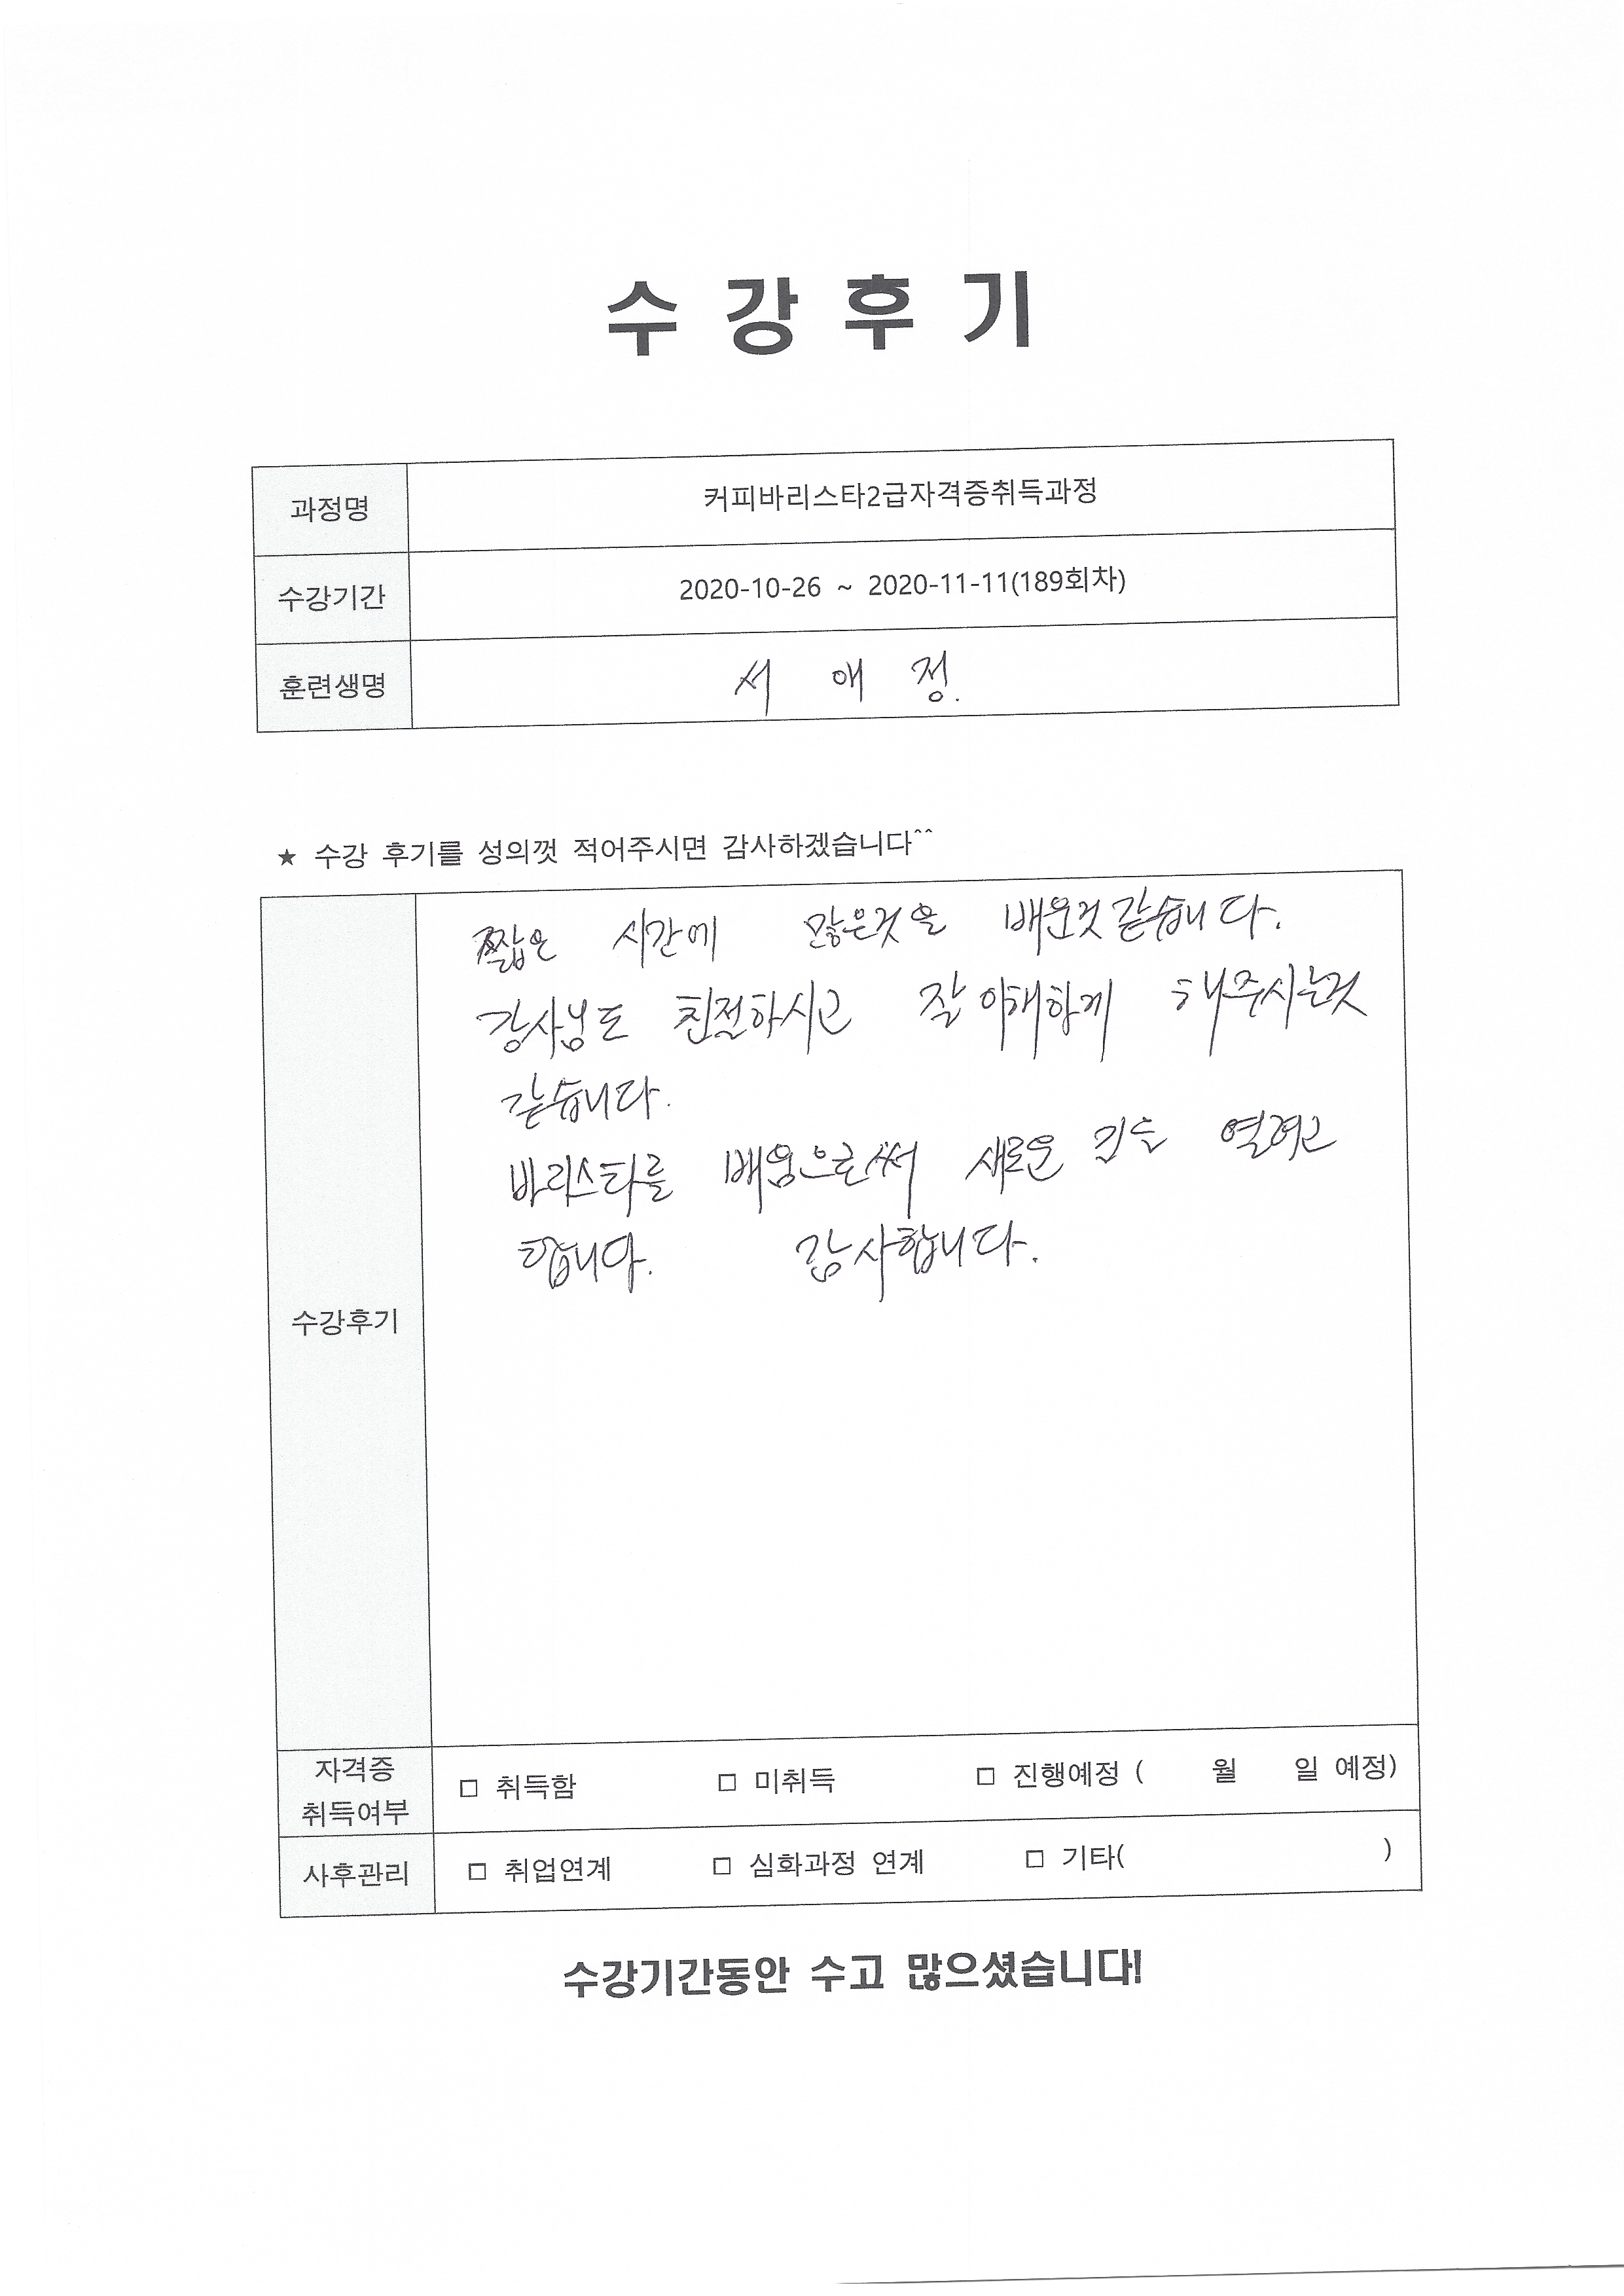 수 강 후 기
과정명 커피바리스타2급자격증취득과정
수강기간 2020-10-26 ~ 2020-11-11(189회차)
훈련생명 서 애 정.
★ 수강 후기를 성의껏 적어주시면 감사하겠습니다^^
짧은 시간에 많은것을 배운것같습니다.
강사님도 친절하시고 잘 이해하게 해주시는것
같습니다.
바리스타를 배움으로써 새로운 길을 열려고
합니다. 감사합니다.
수강후기
자격증
취득여부 □ 취득함 □ 미취득 □ 진행예정 ( 월 일 예정)
사후관리 □ 취업연계 □ 심화과정 연계 □ 기타( )
수강기간동안 수고 많으셨습니다!